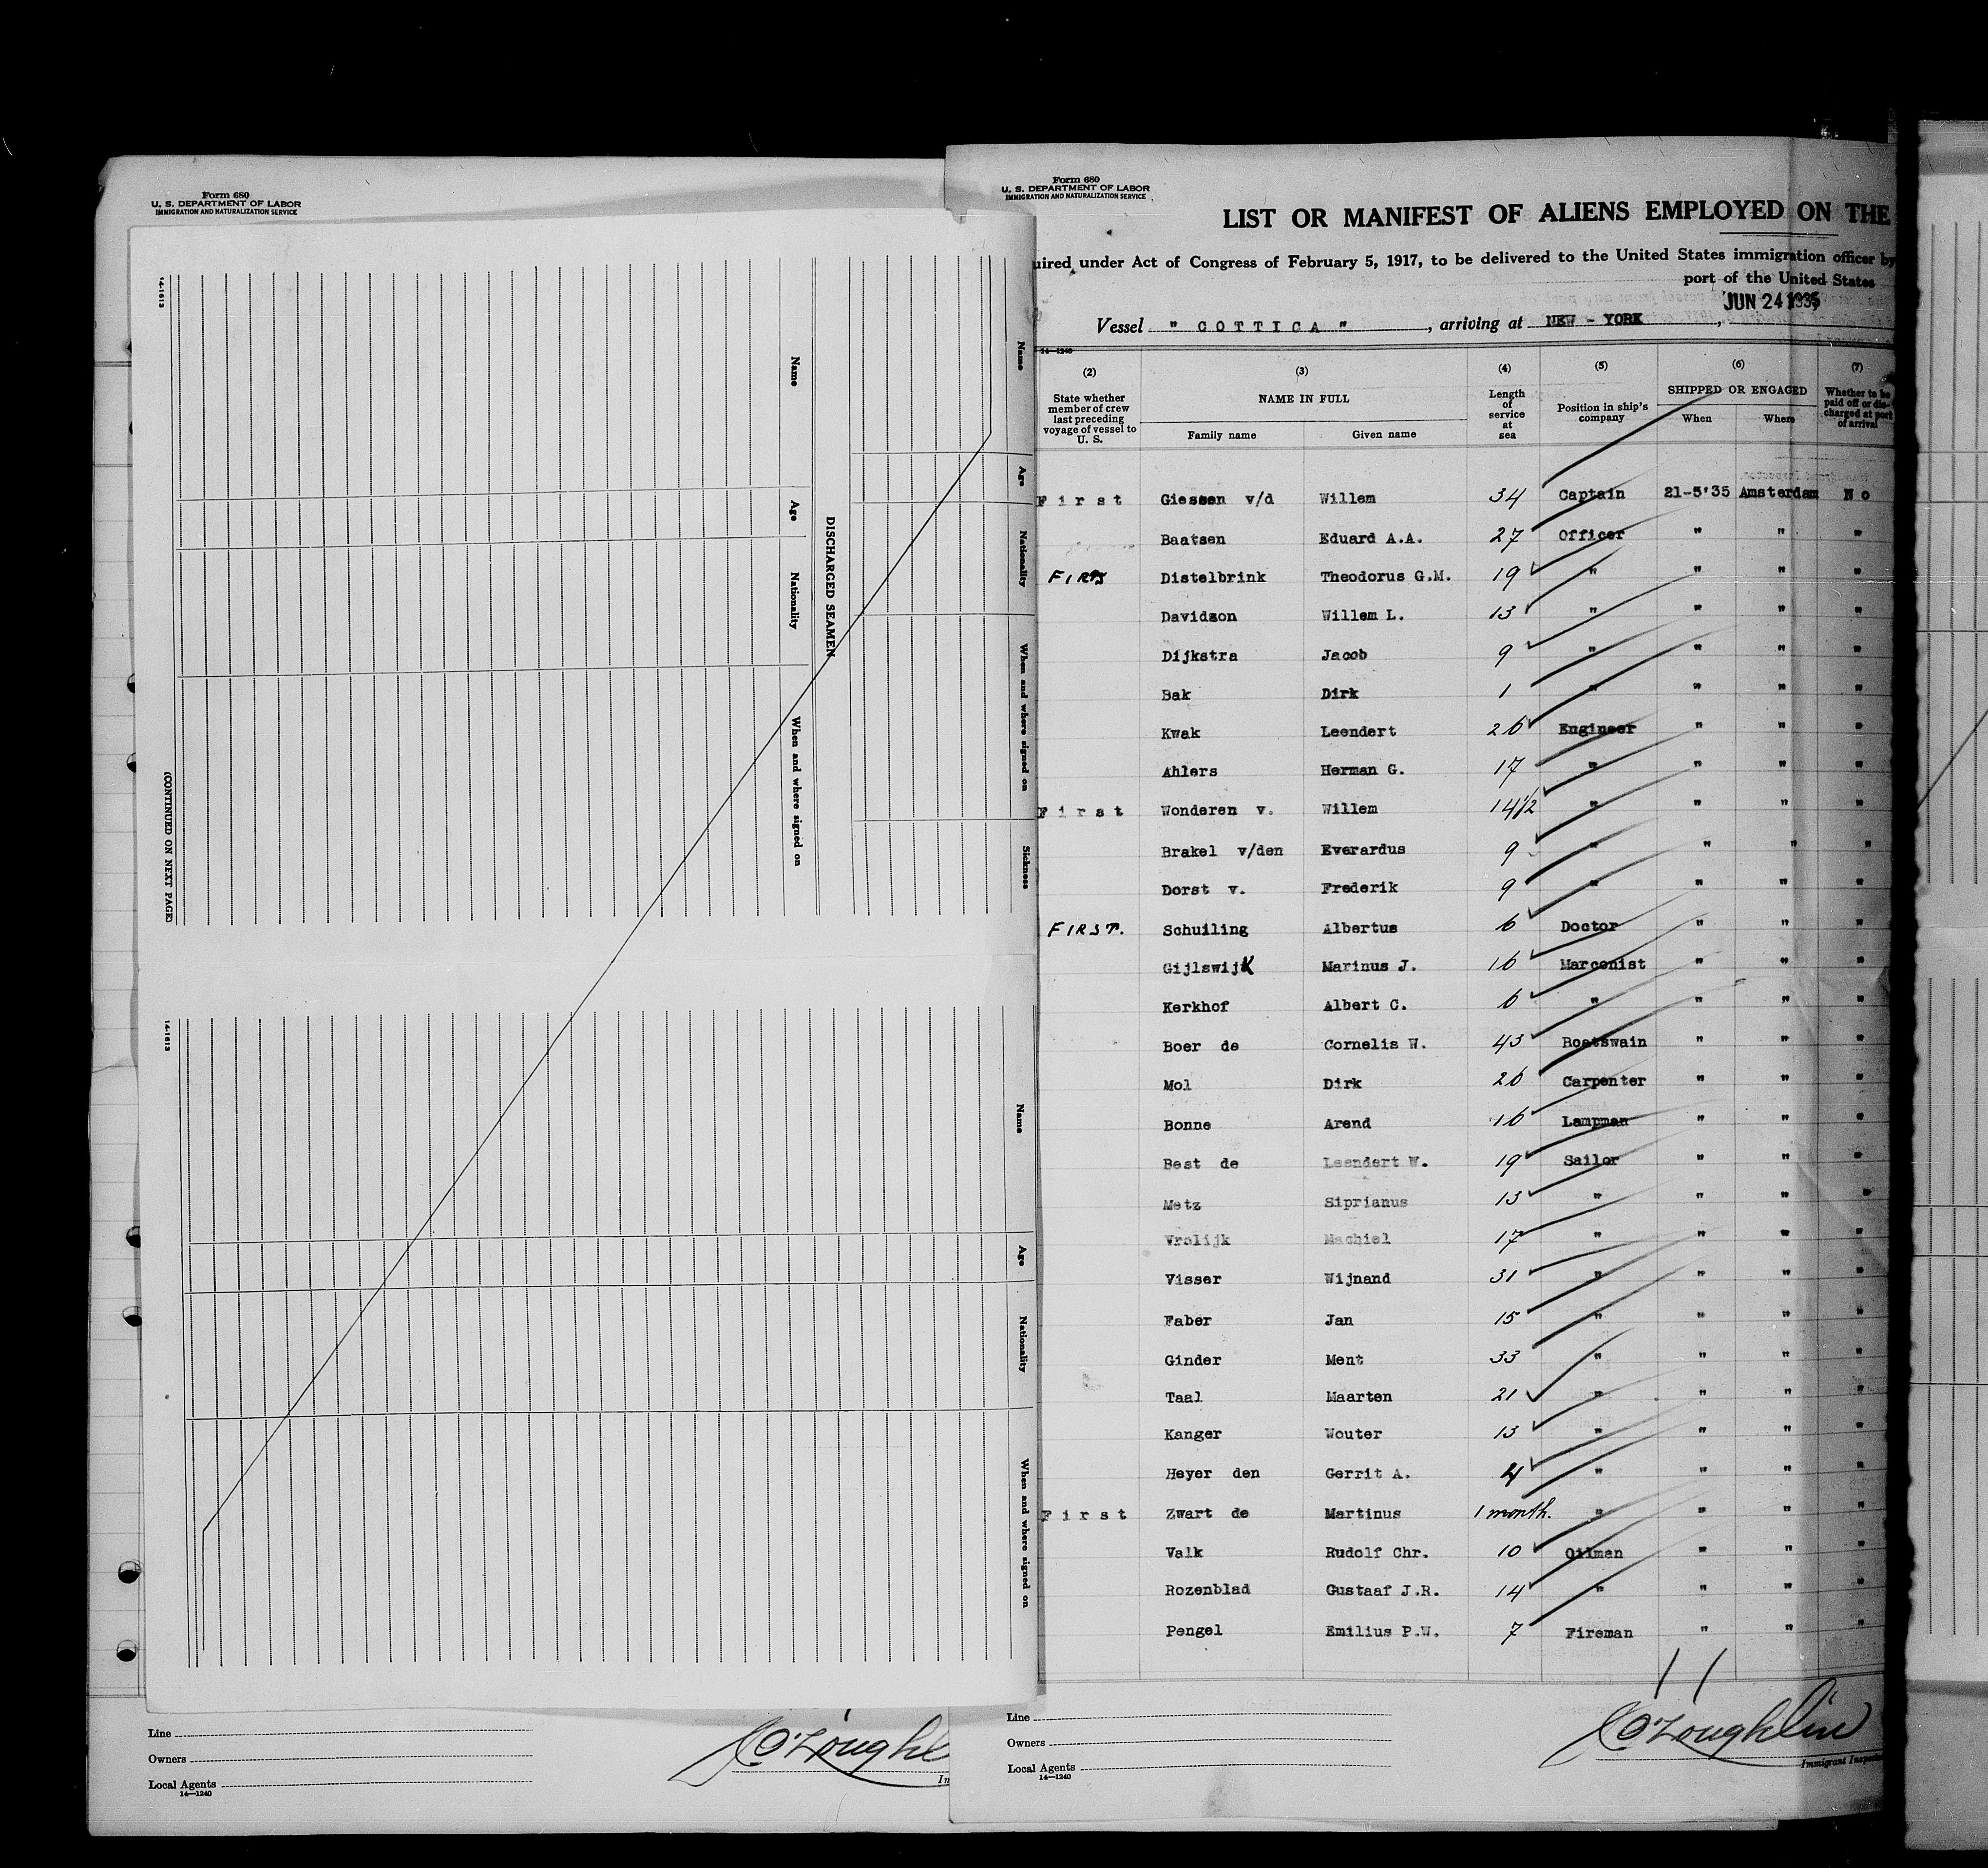 Form 680
U. S. DEPARTMENT OF LABOR
IMMIGRATION AND NATURALIZATION SERVICE
14-1613
Name
Age
Nationality
When and where signed on
Sickness
DISCHARGED SEAMEN
Name
Age
Nationality
When and where signed on
(CONTINUED ON NEXT PAGE)
14-1613
Name
Age
Nationality
When and where signed on
Line
Owners
Local Agents
14—1240
Form 680
U. S. DEPARTMENT OF LABOR
IMMIGRATION AND NATURALIZATION SERVICE
LIST OR MANIFEST OF ALIENS EMPLOYED ON THE
uired under Act of Congress of February 5, 1917, to be delivered to the United States immigration officer by
port of the United States
JUN 24 1935
Vessel " COTTICA ", arriving at NEW - YORK,
14—1240
(2) (3) (4) (5) (6) (7)
State whether member of crew last preceding voyage of vessel to U. S.
NAME IN FULL
Family name Given name
Length of service at sea
Position in ship's company
SHIPPED OR ENGAGED
When Where
Whether to be paid off or discharged at port of arrival
First Giessen v/d Willem 34 Captain 21-5'35 Amsterdam No
Baatsen Eduard A.A. 27 Officer " " "
FIRST Distelbrink Theodorus G.M. 19 " " " "
Davidson Willem L. 13 " " " "
Dijkstra Jacob 9 " " " "
Bak Dirk 1 " " " "
Kwak Leendert 26 Engineer " " "
Ahlers Herman G. 17 " " " "
First Wonderen v. Willem 14½ " " " "
Brakel v/den Everardus 9 " " " "
Dorst v. Frederik 9 " " " "
FIRST. Schuiling Albertus 6 Doctor " " "
Gijlswijk Marinus J. 16 Marconist " " "
Kerkhof Albert C. 6 " " " "
Boer de Cornelis W. 43 Boatswain " " "
Mol Dirk 26 Carpenter " " "
Bonne Arend 16 Lampman " " "
Best de Leendert W. 19 Sailor " " "
Metz Siprianus 13 " " " "
Vrolijk Machiel 17 " " " "
Visser Wijnand 31 " " " "
Faber Jan 15 " " " "
Ginder Ment 33 " " " "
Taal Maarten 21 " " " "
Kanger Wouter 13 " " " "
Heyer den Gerrit A. 4 " " " "
First Zwart de Martinus 1 month. " " " "
Valk Rudolf Chr. 10 Oilman " " "
Rozenblad Gustaaf J.R. 14 " " " "
Pengel Emilius P.W. 7 Fireman " " "
Line
Owners
Local Agents
14—1240
O'Loughlin
Immigrant Inspector